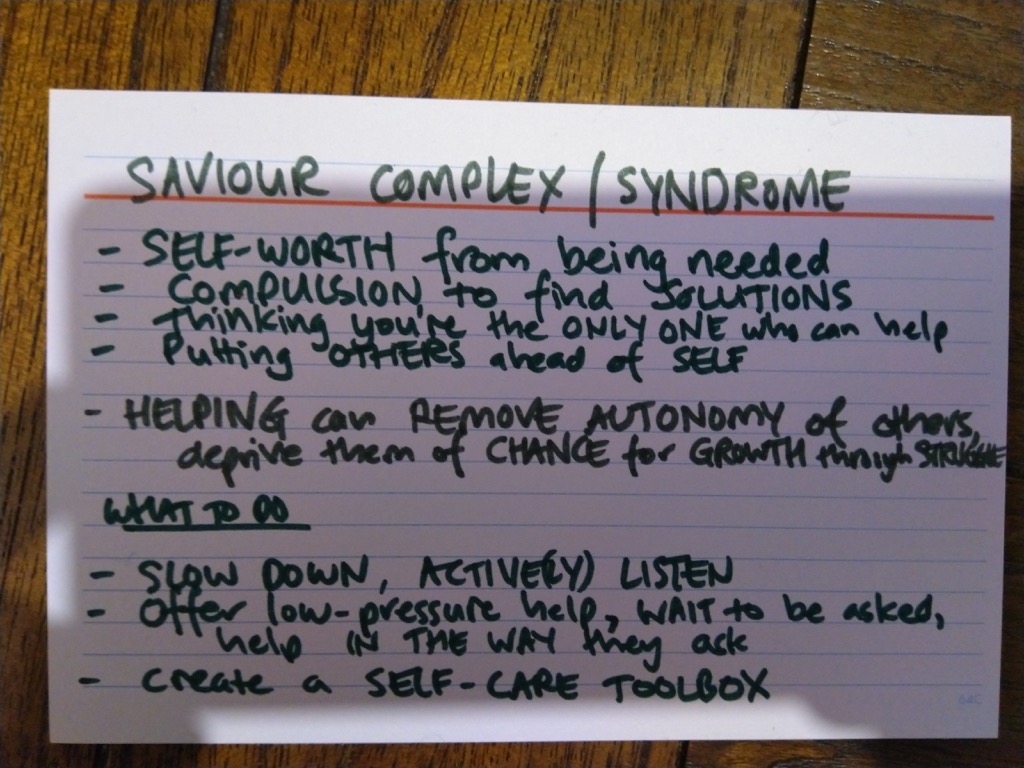 SAVIOUR COMPLEX / SYNDROME
- SELF-WORTH from being needed
- COMPULSION to find SOLUTIONS
- Thinking you're the ONLY ONE who can help
- Putting OTHERS ahead of SELF
- HELPING can REMOVE AUTONOMY of others,
deprive them of CHANCE for GROWTH through STRUGGLE
WHAT TO DO
- SLOW DOWN, ACTIVE(LY) LISTEN
- Offer low-pressure help, WAIT to be asked,
help IN THE WAY they ask
- Create a SELF-CARE TOOLBOX